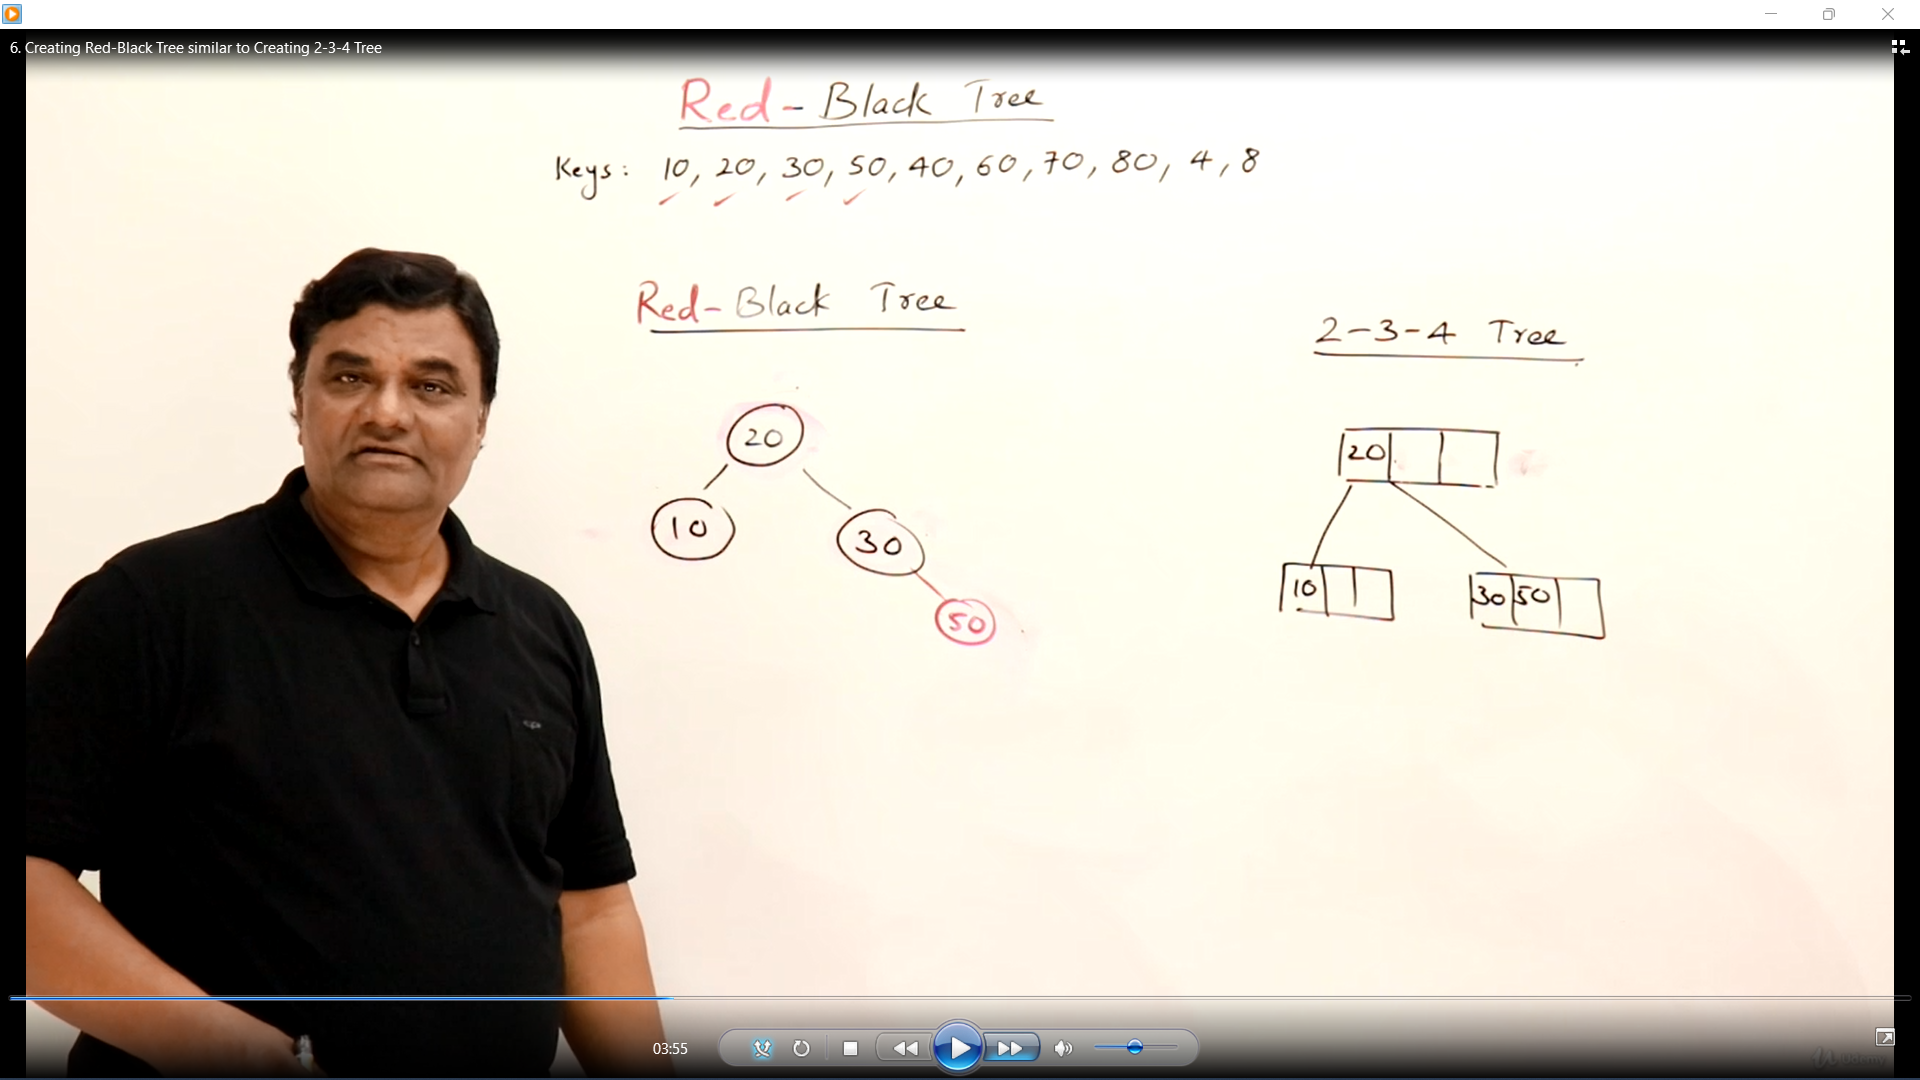 6. Creating Red-Black Tree similar to Creating 2-3-4 Tree
Red - Black Tree
Keys: 10, 20, 30, 50, 40, 60, 70, 80, 4, 8
Red - Black Tree
2-3-4 Tree
20
10
30
50
20
10
30 50
03:55
Udemy